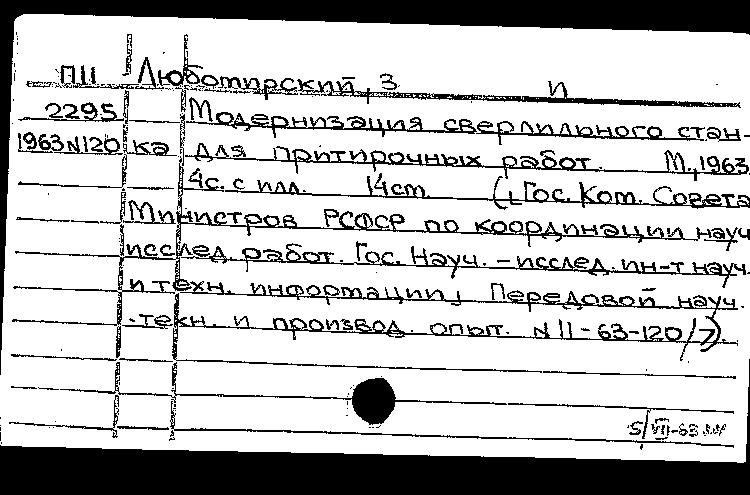 П11 Люботирский, З И
2295 Модернизация сверлильного стан-
1963 N120 ка для притирочных работ. М., 1963
4с. с илл. 14cm. (Гос. Ком. Совета
Министров РСФСР по координации науч
исслед. работ. Гос. Науч. - исслед. ин-т науч.
и техн. информации, Передовой науч.
-техн. и производ. опыт. N 11-63-120/7).
5/VII-63